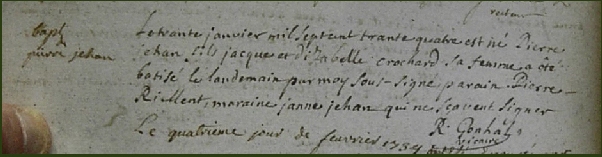 recteur
bapt
pierre jehan
Le trante janvier mil sept cent trante quatre est né Pierre
jehan fils jacque et d'izabelle crochard sa femme a été
batisé le landemain par moy sous-signé parain Pierre
Riellent, maraine janne jehan qui ne scavent signer
R. Gonhay
vicaire
Le quatrieme jour de feuvrier 1734